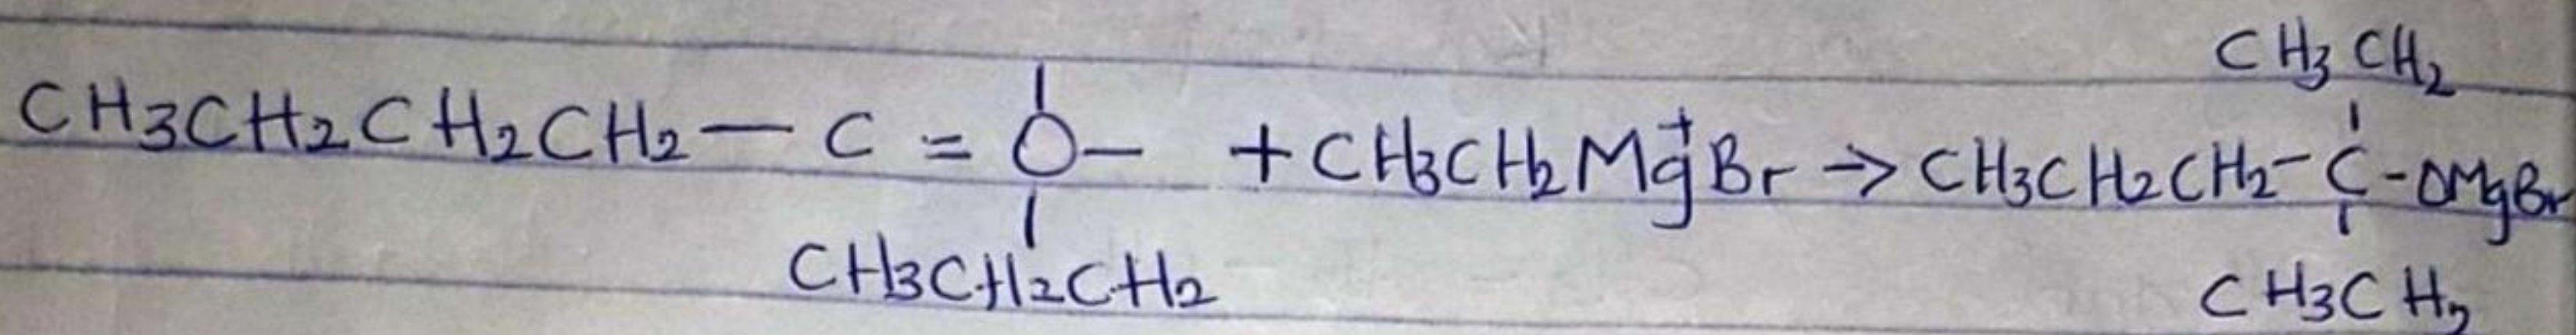 CH3 CH2
CH3CH2CH2CH2 — C = O — + CH3CH2Mg⁺Br → CH3CH2CH2 - C - OMgBr
CH3CH2CH2 CH3CH2